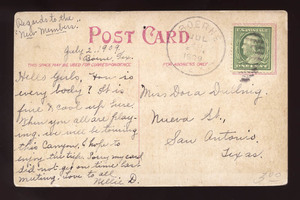 Regards to the
"New Members."
POST CARD
July 2, 1909.
Boerne, Tex.
THIS SPACE MAY BE USED FOR CORRESPONDENCE
FOR ADDRESS ONLY
BOERNE
JUL
Hello Girls, How is
every body? It is
fine & cool up here.
When you all are play-
ing, we will be towing
this Canyon. I hope to
enjoy the trip. Sorry my card
did not get on time last
meeting. Love to all
Nellie D.
Miss Dora
Nueva St.,
San Antonio,
Texas.